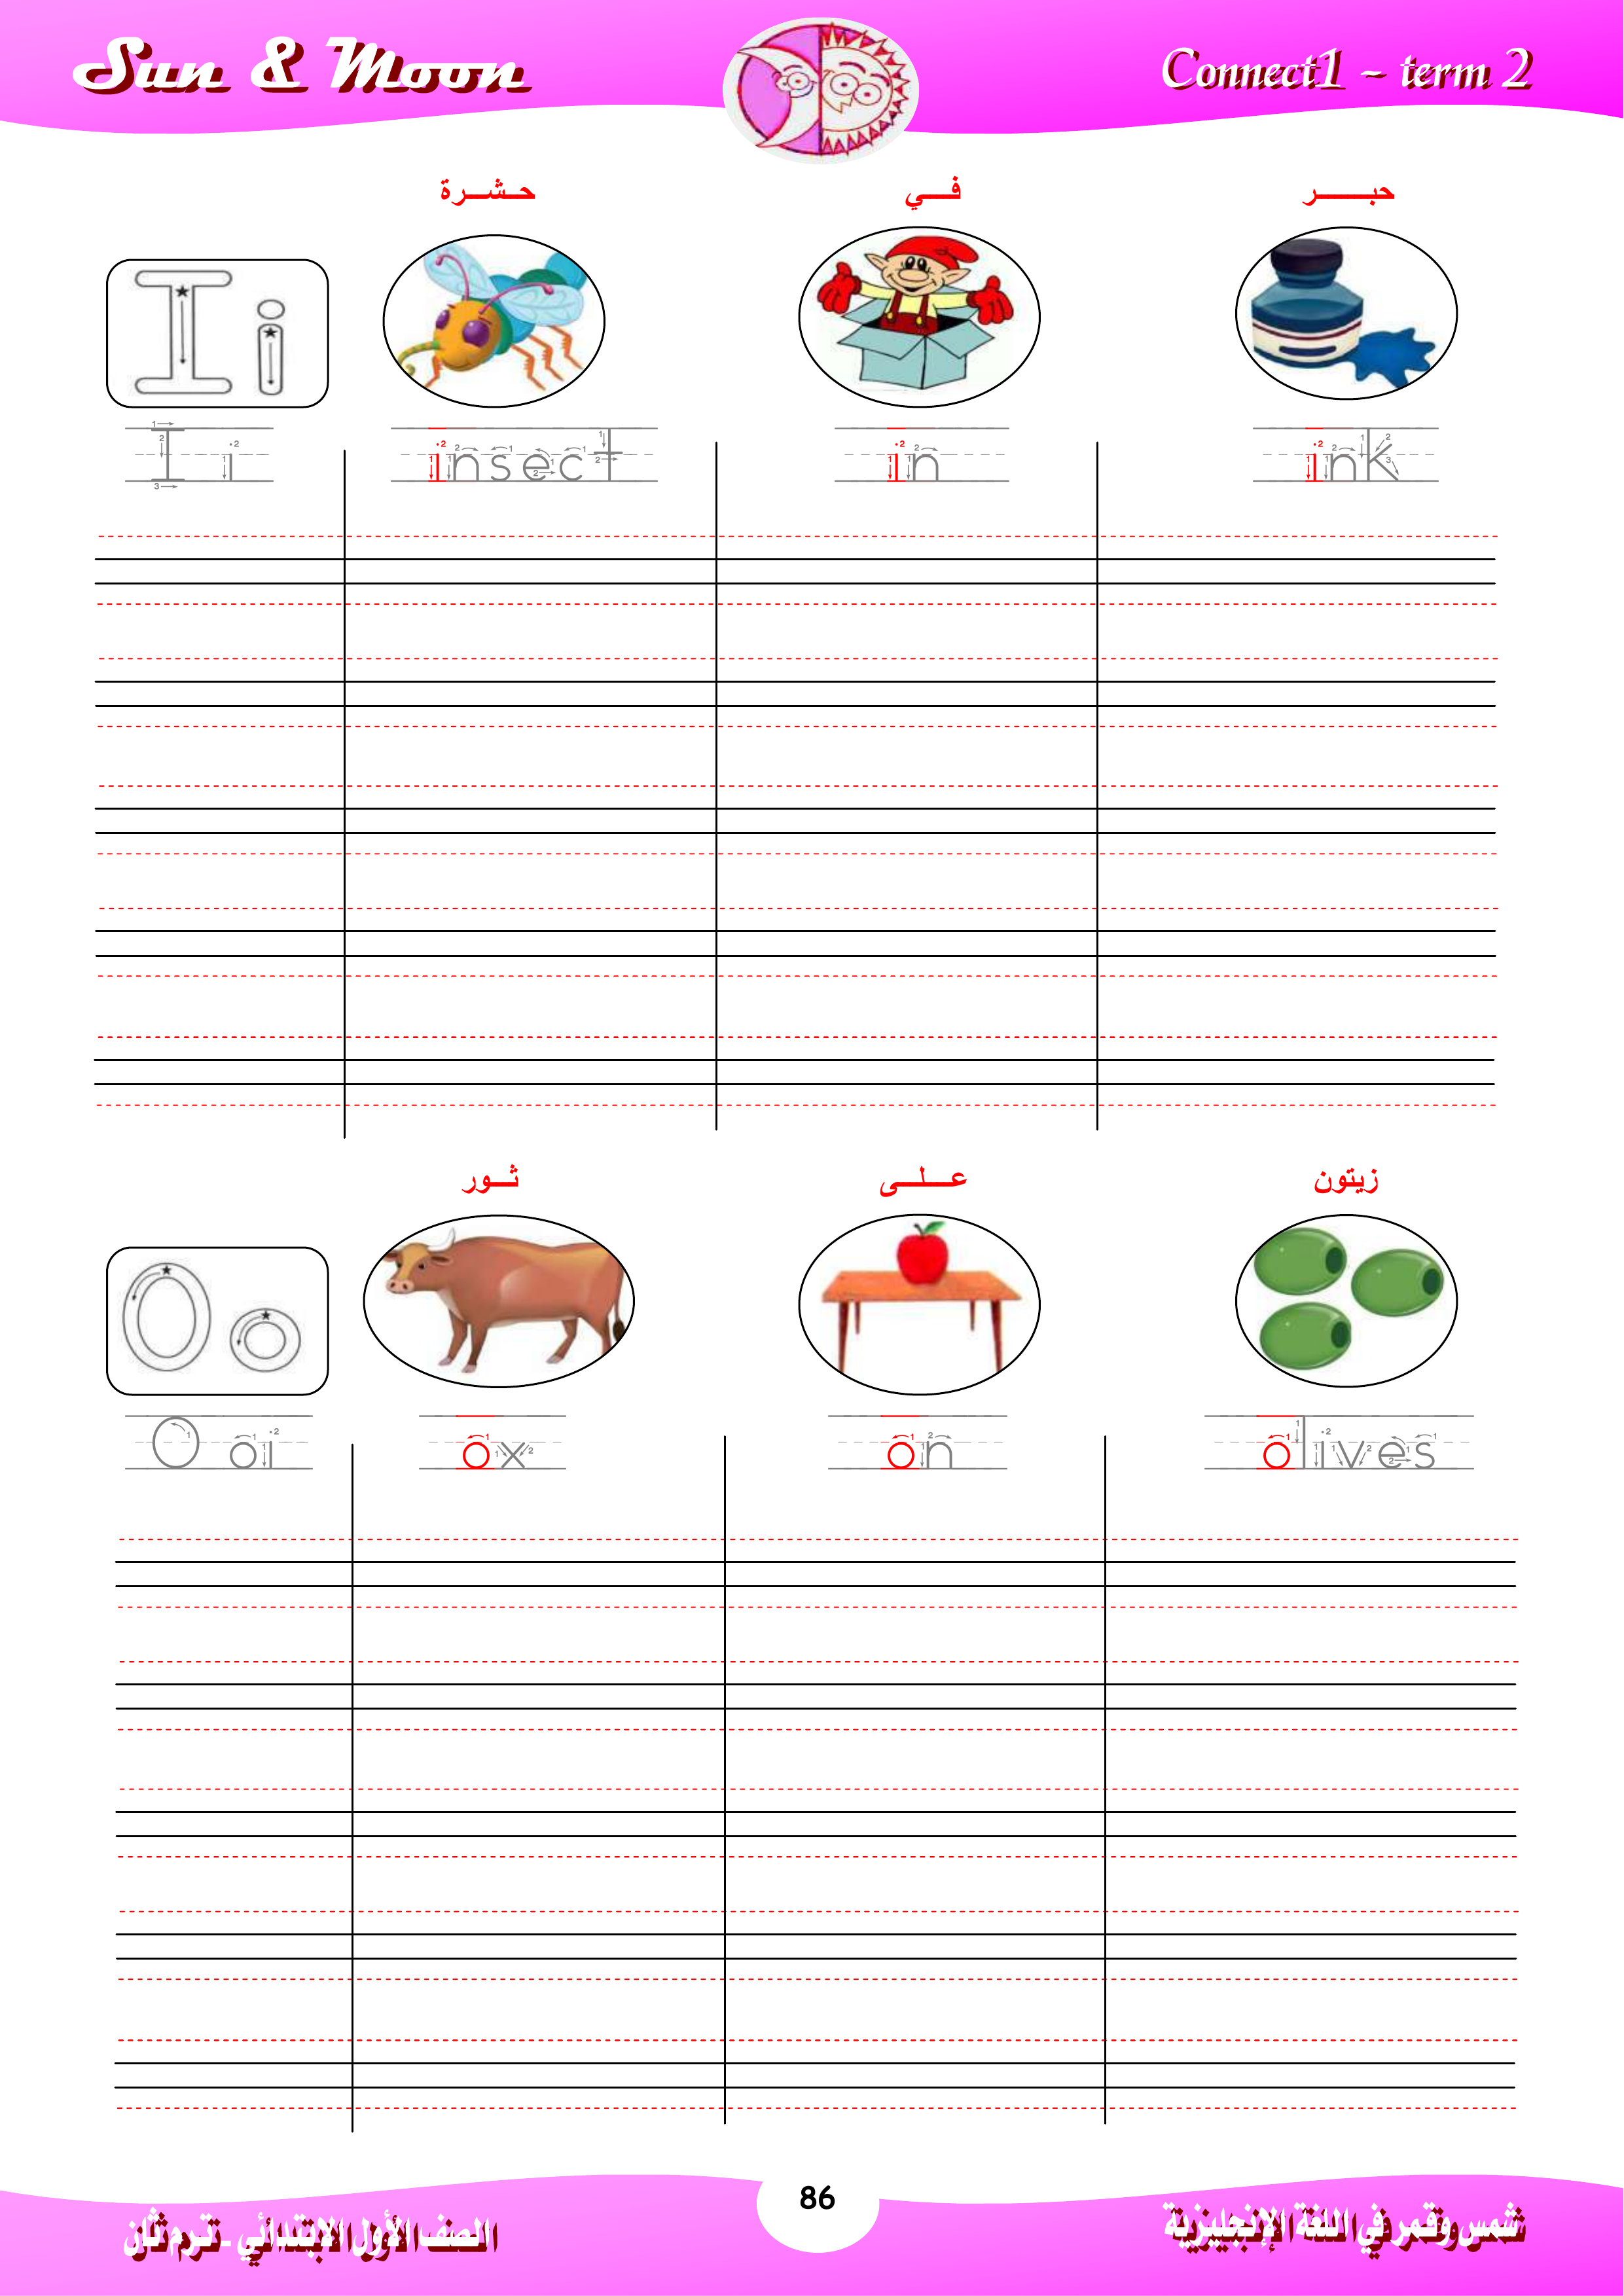 Sun & Moon
Connect1 – term 2
حشرة
في
حبر
I i
I i
insect
in
ink
ثور
على
زيتون
O o
O oi
ox
on
olives
86
الصف الأول الابتدائي - ترم ثان
شمس وقمر في اللغة الإنجليزية